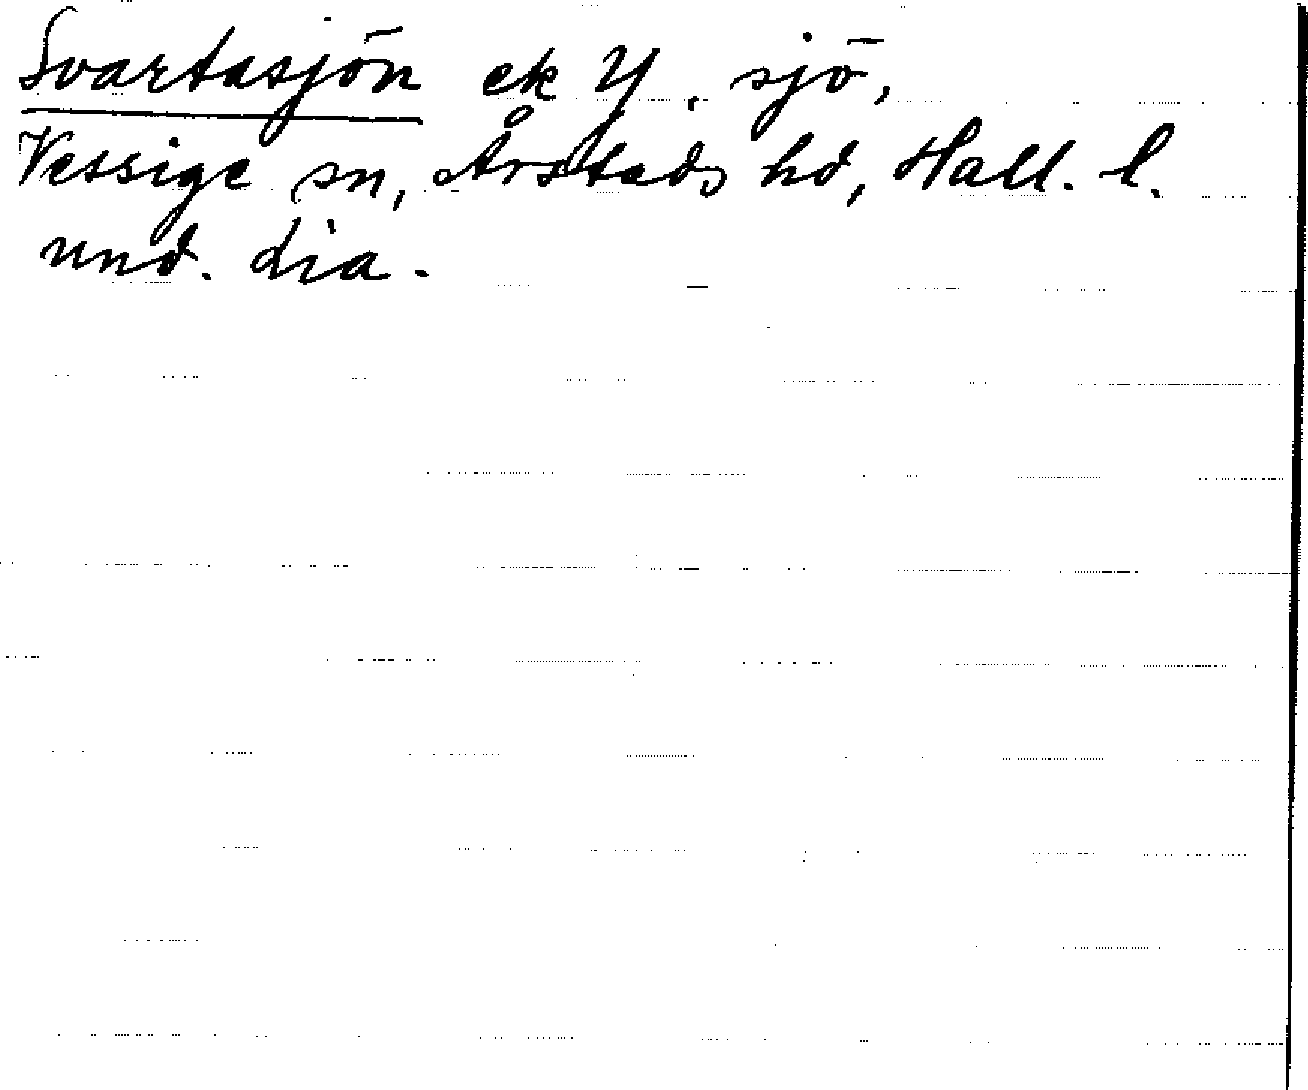 Svartasjön ek Y. sjö,
Vessige sn, Årstads hd, Hall. l.
und. Lia.